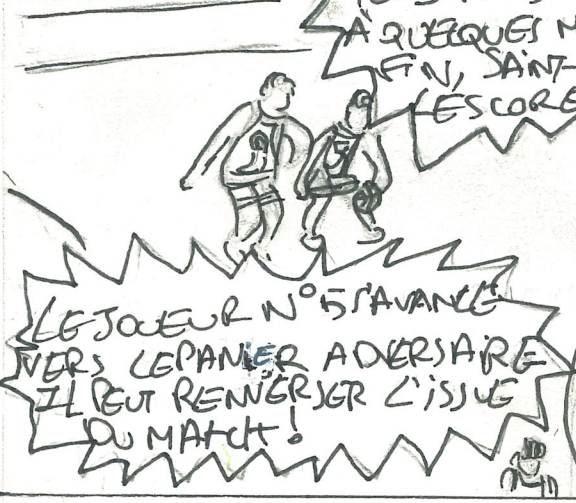 À QUELQUES M
FIN, SAINT-
LE SCORE
5
LE JOUEUR N°5 S'AVANCE
VERS LE PANIER ADVERSAIRE
IL PEUT RENVERSER L'ISSUE
DU MATCH!